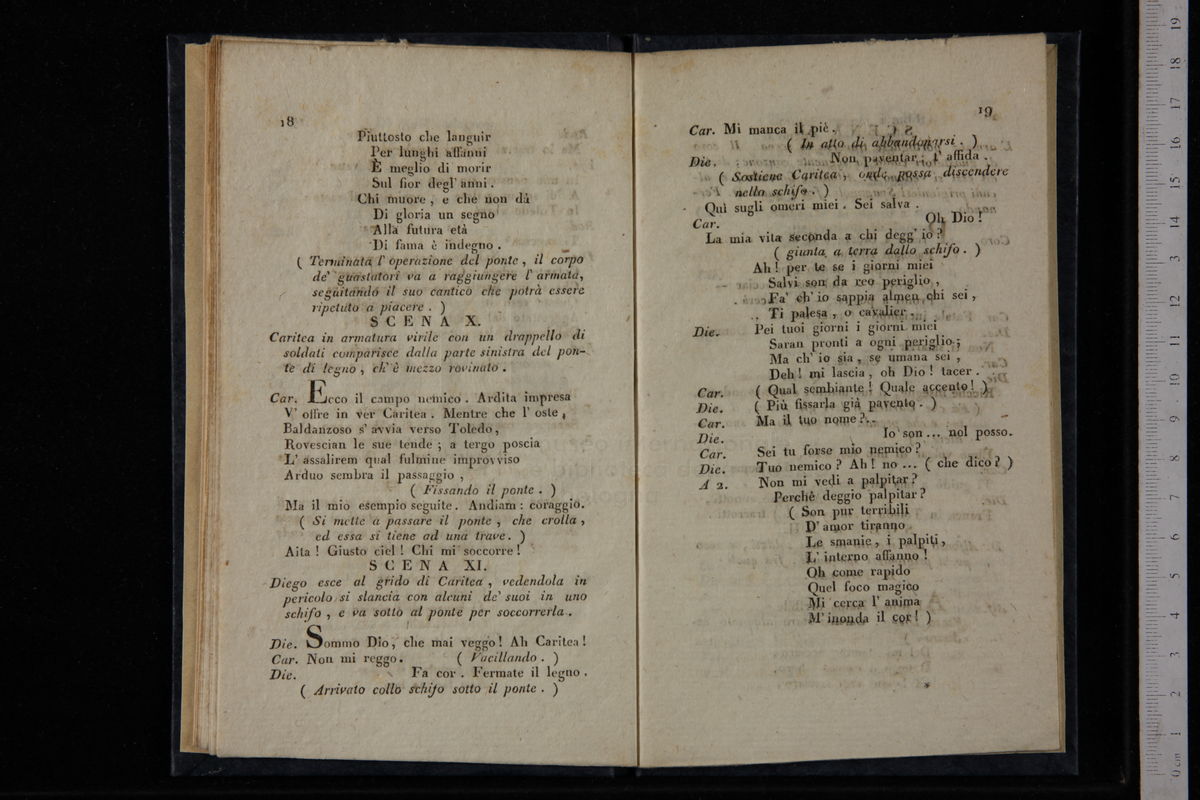 18
Piuttosto che languir
Per lunghi affanni
È meglio di morir
Sul fior degl' anni.
Chi muore, e che non dà
Di gloria un segno
Alla futura età
Di fama è indegno.
( Terminata l' operazione del ponte, il corpo
de' guastatori va a raggiungere l' armata,
seguitando il suo cantico che potrà essere
ripetuto a piacere. )
SCENA X.
Caritea in armatura virile con un drappello di
soldati comparisce dalla parte sinistra del pon-
te di legno, ch' è mezzo rovinato.
Car. Ecco il campo nemico. Ardita impresa
V' offre in ver Caritea. Mentre che l' oste,
Baldanzoso s' avvia verso Toledo,
Rovescian le sue tende; a tergo poscia
L' assalirem qual fulmine improvviso
Arduo sembra il passaggio,
( Fissando il ponte. )
Ma il mio esempio seguite. Andiam: coraggio.
( Si mette a passare il ponte, che crolla,
ed essa si tiene ad una trave. )
Aita! Giusto ciel! Chi mi soccorre!
SCENA XI.
Diego esce al grido di Caritea, vedendola in
pericolo si slancia con alcuni de' suoi in uno
schifo, e va sotto al ponte per soccorrerla.
Die. Sommo Dio, che mai veggo! Ah Caritea!
Car. Non mi reggo. ( Vacillando. )
Die. Fa cor. Fermate il legno.
( Arrivato collo schifo sotto il ponte. )
19
Car. Mi manca il piè.
( In atto di abbandonarsi. )
Die. Non paventar; t' affida.
( Sostiene Caritea, onde possa discendere
nello schifo. )
Quì sugli omeri miei. Sei salva.
Car. Oh Dio!
La mia vita seconda a chi degg' io?
( giunta a terra dallo schifo. )
Ah! per te se i giorni miei
Salvi son da reo periglio,
Fa' ch' io sappia almen chi sei,
Ti palesa, o cavalier.
Die. Pei tuoi giorni i giorni miei
Saran pronti a ogni periglio;
Ma ch' io sia, se umana sei,
Deh! mi lascia, oh Dio! tacer.
Car. ( Qual sembiante! Quale accento! )
Die. ( Più fissarla già pavento. )
Car. Ma il tuo nome?..
Die. Io son... nol posso.
Car. Sei tu forse mio nemico?
Die. Tuo nemico? Ah! no... ( che dico? )
A 2. Non mi vedi a palpitar?
Perchè deggio palpitar?
( Son pur terribili
D' amor tiranno
Le smanie, i palpiti,
L' interno affanno!
Oh come rapido
Quel foco magico
Mi cerca l' anima
M' inonda il cor! )